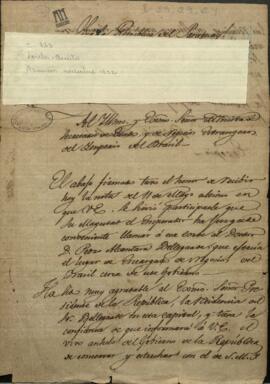 Rep.ca del Paraguay
Al Ilmo. y Exmo. Señor Ministro
Secretario de Estado y de Negocios Estrangeros
del Imperio del Brasil
El abajo firmado tuvo el honor de recibir
hoy la nota de 11 de Mayo ultimo en
que V.E. le hizo participante que
Su Magestad el Emperador ha juzgado
conveniente llamar á su corte al
D. Pedro Alcantara Bellegarde que ejercia
el cargo de Encargado de Negocios del
Brasil cerca de este Gobierno.
Ha sido muy agradable al Exmo. Señor Presidente
de la República, la residencia del
Sr. Bellegarde en esta capital, y tiene la
confianza de que informará á V.E. el
vivo anhelo del Gobierno de la República
de conservar y estrechar con el de S.M.I.